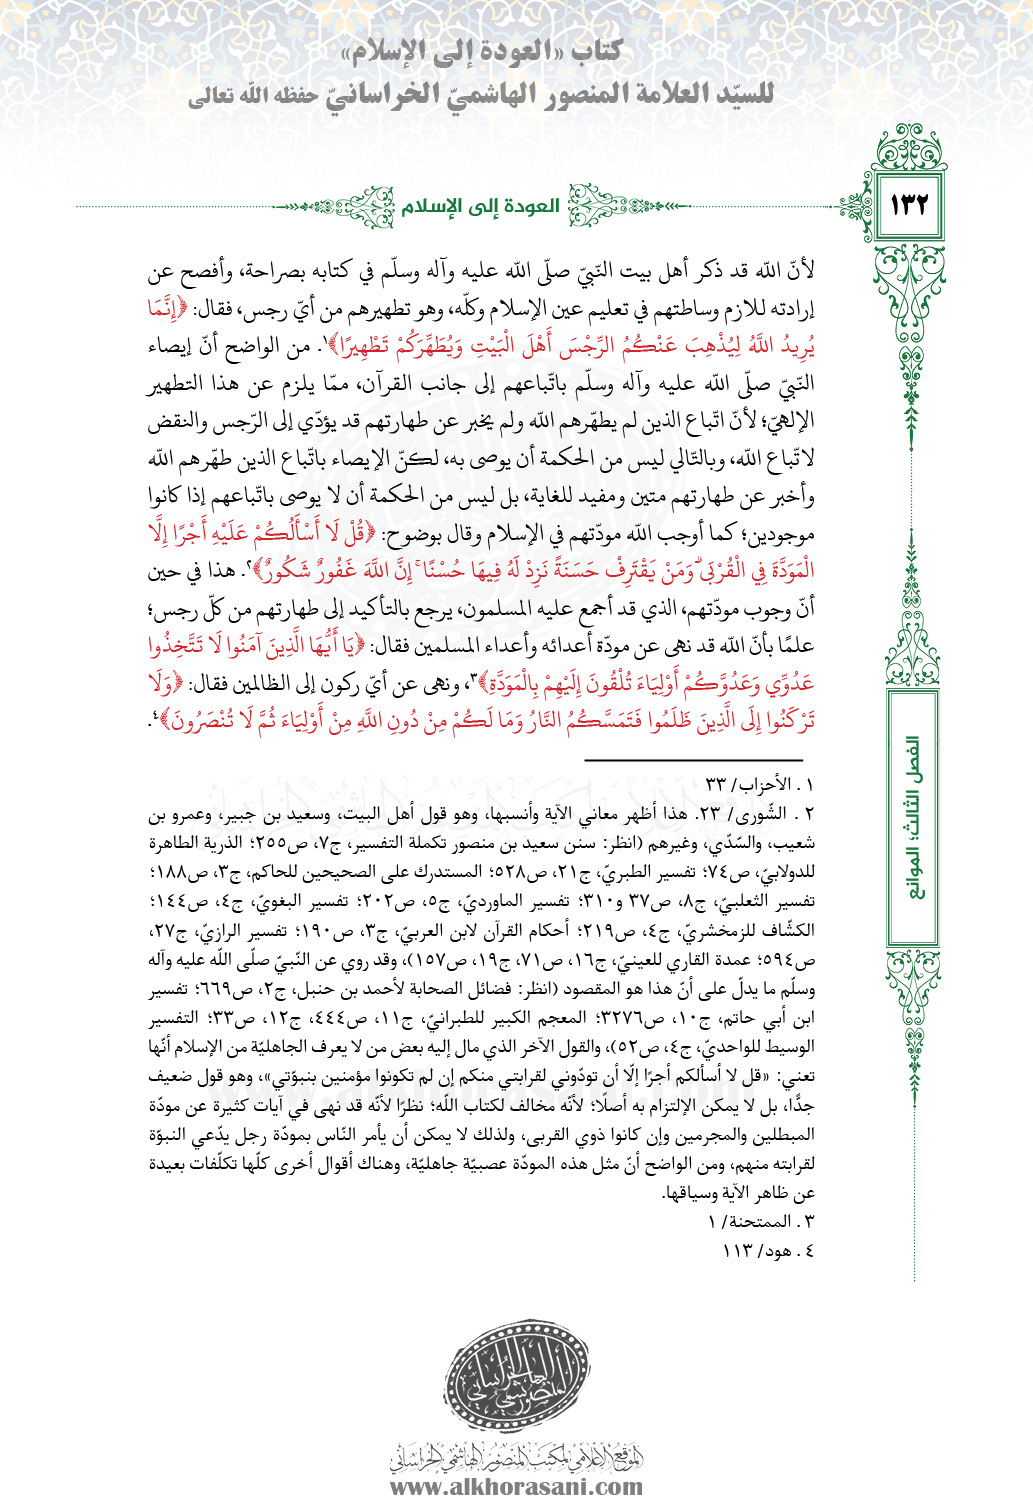 كتاب «العودة إلى الإسلام»
للسيّد العلامة المنصور الهاشميّ الخراسانيّ حفظه الله تعالى
١٣٢
العودة إلى الإسلام
لأنّ اللّه قد ذكر أهل بيت النّبيّ صلّى اللّه عليه وآله وسلّم في كتابه بصراحة، وأفصح عن
إرادته للازم وساطتهم في تعليم عين الإسلام وكلّه، وهو تطهيرهم من أيّ رجس، فقال: ﴿إِنَّمَا
يُرِيدُ اللَّهُ لِيُذْهِبَ عَنْكُمُ الرِّجْسَ أَهْلَ الْبَيْتِ وَيُطَهِّرَكُمْ تَطْهِيرًا﴾١. من الواضح أنّ إيصاء
النّبيّ صلّى اللّه عليه وآله وسلّم باتّباعهم إلى جانب القرآن، ممّا يلزم عن هذا التطهير
الإلهيّ؛ لأنّ اتّباع الذين لم يطهّرهم اللّه ولم يخبر عن طهارتهم قد يؤدّي إلى الرّجس والنقض
لاتّباع اللّه، وبالتّالي ليس من الحكمة أن يوصى به، لكنّ الإيصاء باتّباع الذين طهّرهم اللّه
وأخبر عن طهارتهم متين ومفيد للغاية، بل ليس من الحكمة أن لا يوصى باتّباعهم إذا كانوا
موجودين؛ كما أوجب اللّه مودّتهم في الإسلام وقال بوضوح: ﴿قُلْ لَا أَسْأَلُكُمْ عَلَيْهِ أَجْرًا إِلَّا
الْمَوَدَّةَ فِي الْقُرْبَى ۗ وَمَنْ يَقْتَرِفْ حَسَنَةً نَزِدْ لَهُ فِيهَا حُسْنًا ۚ إِنَّ اللَّهَ غَفُورٌ شَكُورٌ﴾٢. هذا في حين
أنّ وجوب مودّتهم، الذي قد أجمع عليه المسلمون، يرجع بالتأكيد إلى طهارتهم من كلّ رجس؛
علمًا بأنّ اللّه قد نهى عن مودّة أعدائه وأعداء المسلمين فقال: ﴿يَا أَيُّهَا الَّذِينَ آمَنُوا لَا تَتَّخِذُوا
عَدُوِّي وَعَدُوَّكُمْ أَوْلِيَاءَ تُلْقُونَ إِلَيْهِمْ بِالْمَوَدَّةِ﴾٣، ونهى عن أيّ ركون إلى الظالمين فقال: ﴿وَلَا
تَرْكَنُوا إِلَى الَّذِينَ ظَلَمُوا فَتَمَسَّكُمُ النَّارُ وَمَا لَكُمْ مِنْ دُونِ اللَّهِ مِنْ أَوْلِيَاءَ ثُمَّ لَا تُنْصَرُونَ﴾٤.
الفصل الثالث؛ الموانع
١ . الأحزاب/ ٣٣
٢ . الشّورى/ ٢٣. هذا أظهر معاني الآية وأنسبها، وهو قول أهل البيت، وسعيد بن جبير، وعمرو بن
شعيب، والسّدّي، وغيرهم (انظر: سنن سعيد بن منصور تكملة التفسير، ج٧، ص٢٥٥؛ الذرية الطاهرة
للدولابيّ، ص٧٤؛ تفسير الطبريّ، ج٢١، ص٥٢٨؛ المستدرك على الصحيحين للحاكم، ج٣، ص١٨٨؛
تفسير الثعلبيّ، ج٨، ص٣٧ و٣١٠؛ تفسير الماورديّ، ج٥، ص٢٠٢؛ تفسير البغويّ، ج٤، ص١٤٤؛
الكشّاف للزمخشريّ، ج٤، ص٢١٩؛ أحكام القرآن لابن العربيّ، ج٣، ص١٩٠؛ تفسير الرازيّ، ج٢٧،
ص٥٩٤؛ عمدة القاري للعينيّ، ج١٦، ص٧١، ج١٩، ص١٥٧)، وقد روي عن النّبيّ صلّى اللّه عليه وآله
وسلّم ما يدلّ على أنّ هذا هو المقصود (انظر: فضائل الصحابة لأحمد بن حنبل، ج٢، ص٦٦٩؛ تفسير
ابن أبي حاتم، ج١٠، ص٣٢٧٦؛ المعجم الكبير للطبرانيّ، ج١١، ص٤٤٤، ج١٢، ص٣٣؛ التفسير
الوسيط للواحديّ، ج٤، ص٥٢)، والقول الآخر الذي مال إليه بعض من لا يعرف الجاهليّة من الإسلام أنّها
تعني: «قل لا أسألكم أجرًا إلّا أن تودّوني لقرابتي منكم إن لم تكونوا مؤمنين بنبوّتي»، وهو قول ضعيف
جدًّا، بل لا يمكن الإلتزام به أصلًا؛ لأنّه مخالف لكتاب اللّه؛ نظرًا لأنّه قد نهى في آيات كثيرة عن مودّة
المبطلين والمجرمين وإن كانوا ذوي القربى، ولذلك لا يمكن أن يأمر النّاس بمودّة رجل يدّعي النبوّة
لقرابته منهم، ومن الواضح أنّ مثل هذه المودّة عصبيّة جاهليّة، وهناك أقوال أخرى كلّها تكلّفات بعيدة
عن ظاهر الآية وسياقها.
٣ . الممتحنة/ ١
٤ . هود/ ١١٣
الموقع الإعلامي لمكتب المنصور الهاشمي الخراساني
www.alkhorasani.com